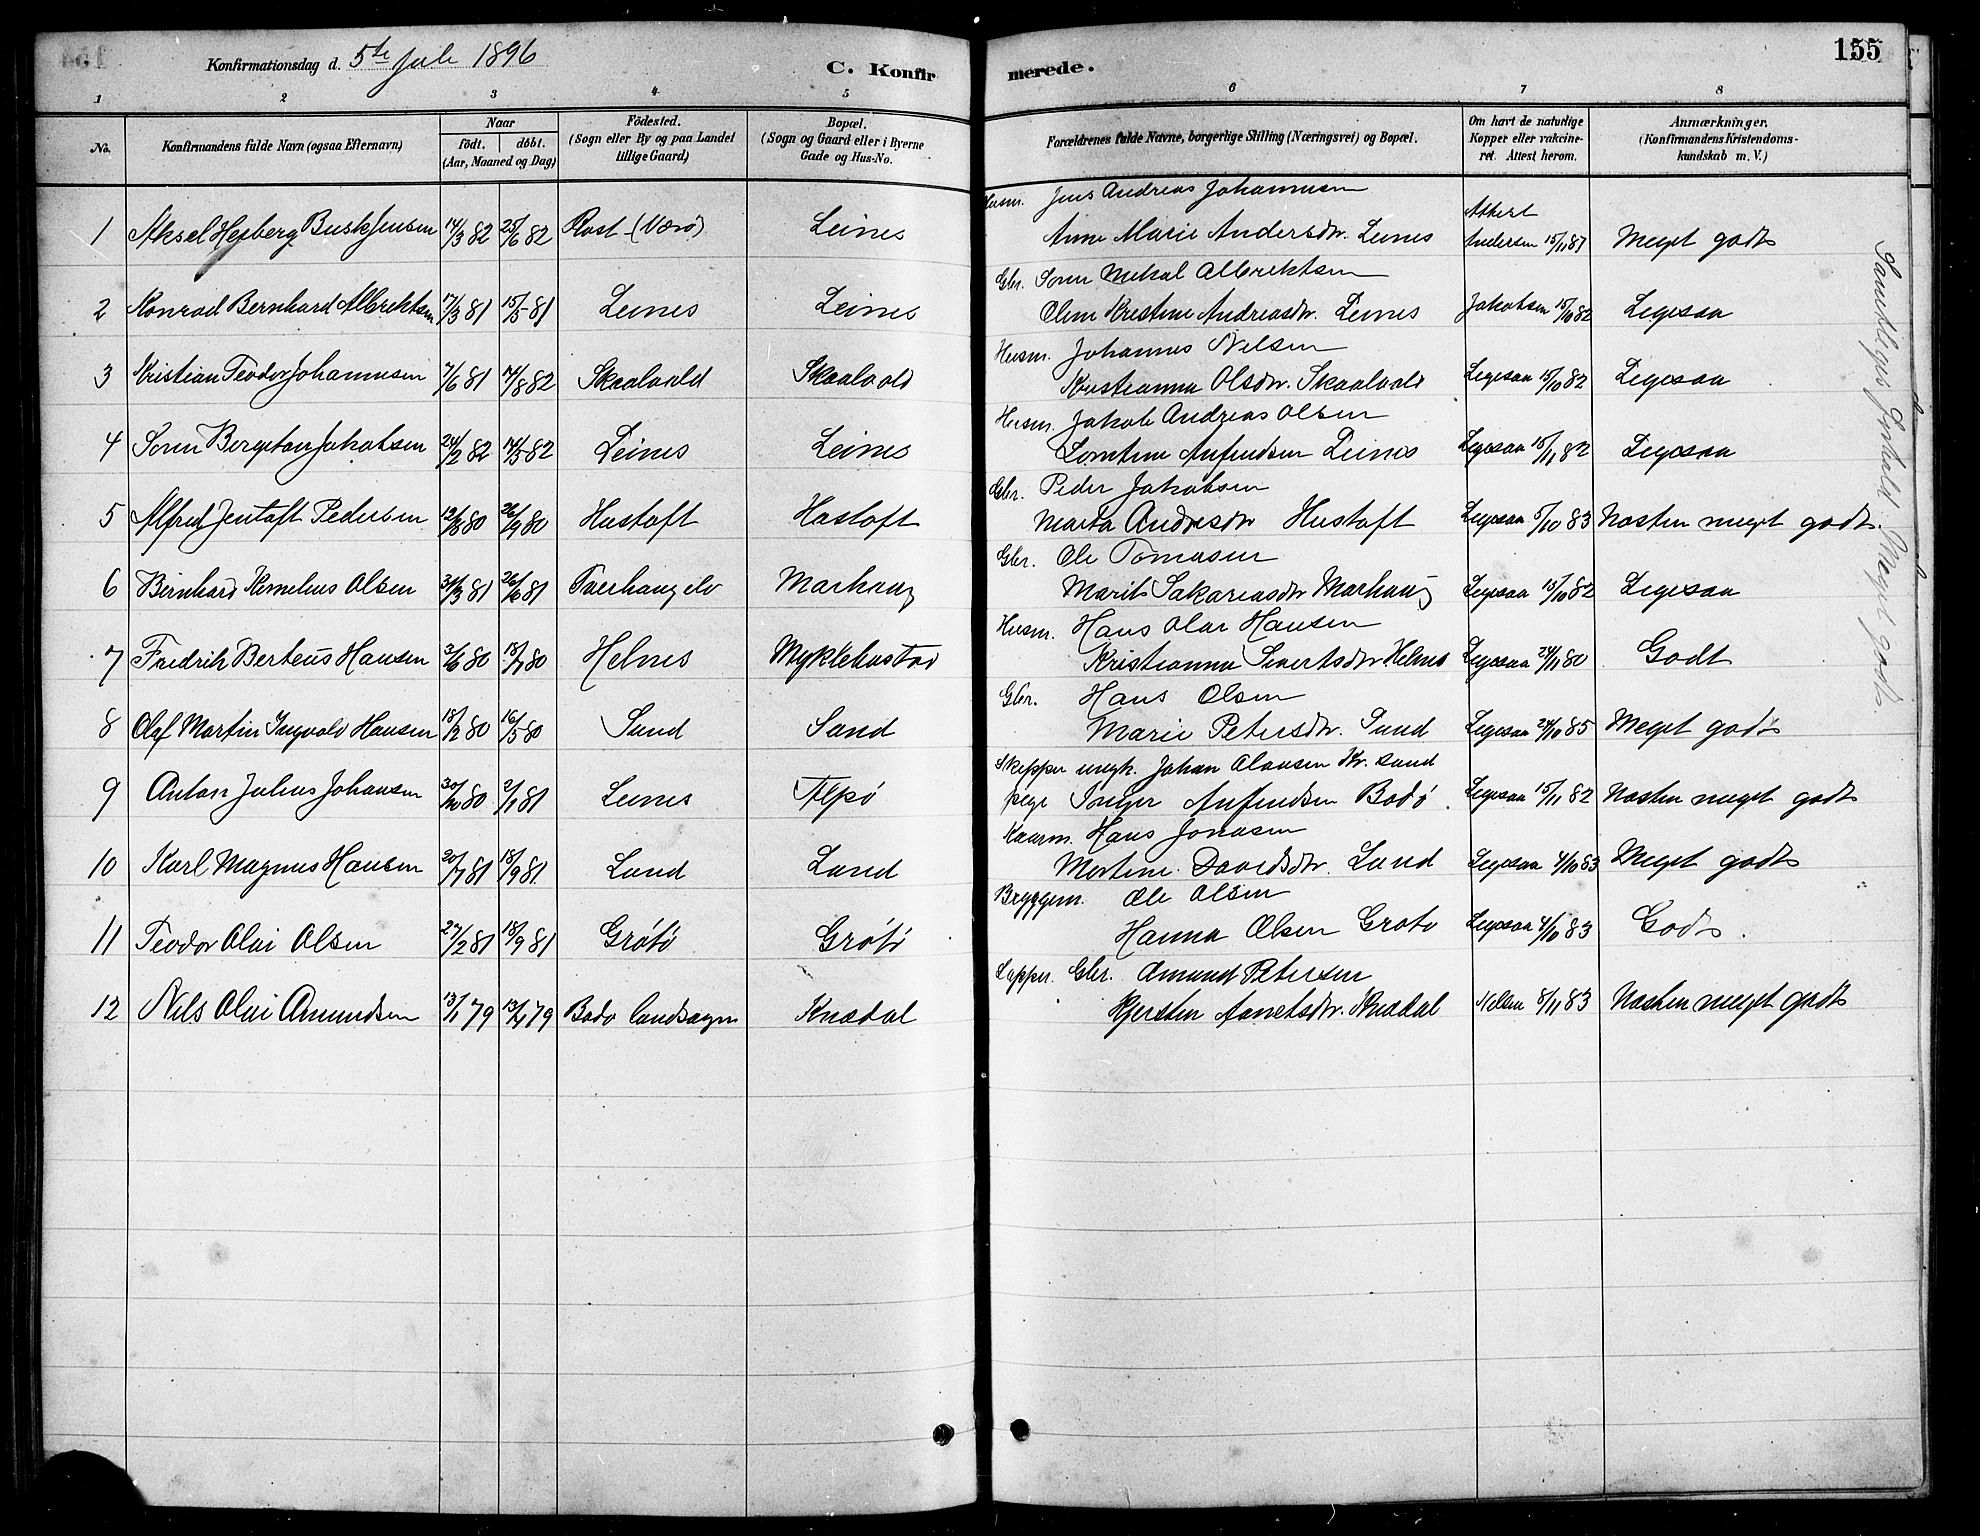 Konfirmationsdag d. 5te Juli 1896
C. Konfirmerede.
155
1 2 3 4 5 6 7 8
No. Konfirmandens fulde Navn (ogsaa Efternavn) Naar födt. döbt. (Aar, Maaned og Dag) Födested. (Sogn eller By og paa Landet tillige Gaard) Bopæl. (Sogn og Gaard eller i Byerne Gade og Hus-No. Forældrenes fulde Navne, borgerlige Stilling (Næringsvei) og Bopæl. Om havt de naturlige Kopper eller vakcineret. Attest herom. Anmærkninger. (Konfirmandens Kristendomskundskab m. V.)
Husm. Jens Andreas Johannesen
1 Aksel Hejberg Busk Jensen 14/3 82 25/6 82 Røst (Værø) Leines Anne Marie Andersdtr. Leines Attest Andersen 15/11 87 Meget godt
Gbr. Sören Mikal Albriktsen
2 Konrad Bernhard Albriktsen 17/3 81 15/5 81 Leines Leines Oline Kristine Andreasdtr. Leines Jakobsen 15/10 82 Ligesaa
Husm. Johannes Nilsen
3 Kristian Teodor Johannesen 7/6 81 7/8 82 Skaalvold Skaalvold Kristianna Olsdtr. Skaalvold Ligesaa 15/10 82 Ligesaa
Husm. Jakob Andreas Olsen
4 Sören Bergeton Jakobsen 24/2 82 14/5 82 Leines Leines Anfindsen Leines Ligesaa 15/11 82 Ligesaa
Gbr. Peder Jakobsen
5 Alfred Jentoft Pedersen 12/8 80 26/9 80 Hustoft Hustoft Marta Andreasdtr Hustoft Ligesaa 5/10 83 Næsten meget godt.
Gbr. Ole Tomasen
6 Bernhard Kornelius Olsen 31/3 81 26/6 81 Tverhaugelv Marhaug Marit Sakariasdtr Marhaug Ligesaa 15/10 82 Ligesaa
Husm. Hans Olai Hansen
7 Fredrik Berteus Hansen 3/6 80 18/7 80 Helnes Myklebostad Kristianna Sivertsdtr Helnes Ligesaa 24/11 80 Godt
Gbr. Hans Olsen
8 Olaf Martin Ingvald Hansen 18/2 80 16/5 80 Sund Sund Marie Petersdtr. Sund Ligesaa 24/10 85 Meget godt
Skipper ungk. Johan Olausen Kr. sund
9 Anton Julius Johansen 30/10 80 2/1 81 Leines Alpö pige Inger Anfindsen Bodö. Ligesaa 15/11 82 Næsten meget godt
Kaarm. Hans Jonasen
10 Karl Magnus Hansen 20/7 81 18/9 81. Lund Lund Mortine Davidsdtr. Lund Ligesaa 4/10 83 Meget godt
Bryggem. Ole Olsen
11 Teodor Olai Olsen 27/2 81 18/9 81 Grötö Grötö Hanna Olsen Grötö Ligesaa 4/10 83 Godt.
Lapper. Gbr. Amund Petersen
12 Nils Olai Amundsen 13/1 79 13/4 79 Bodö landsogn Knædal Kjersten Arnetsdtr. Knædal Nilsen 8/11 83 Næsten meget godt
Samtliges Forhold: Meget godt.